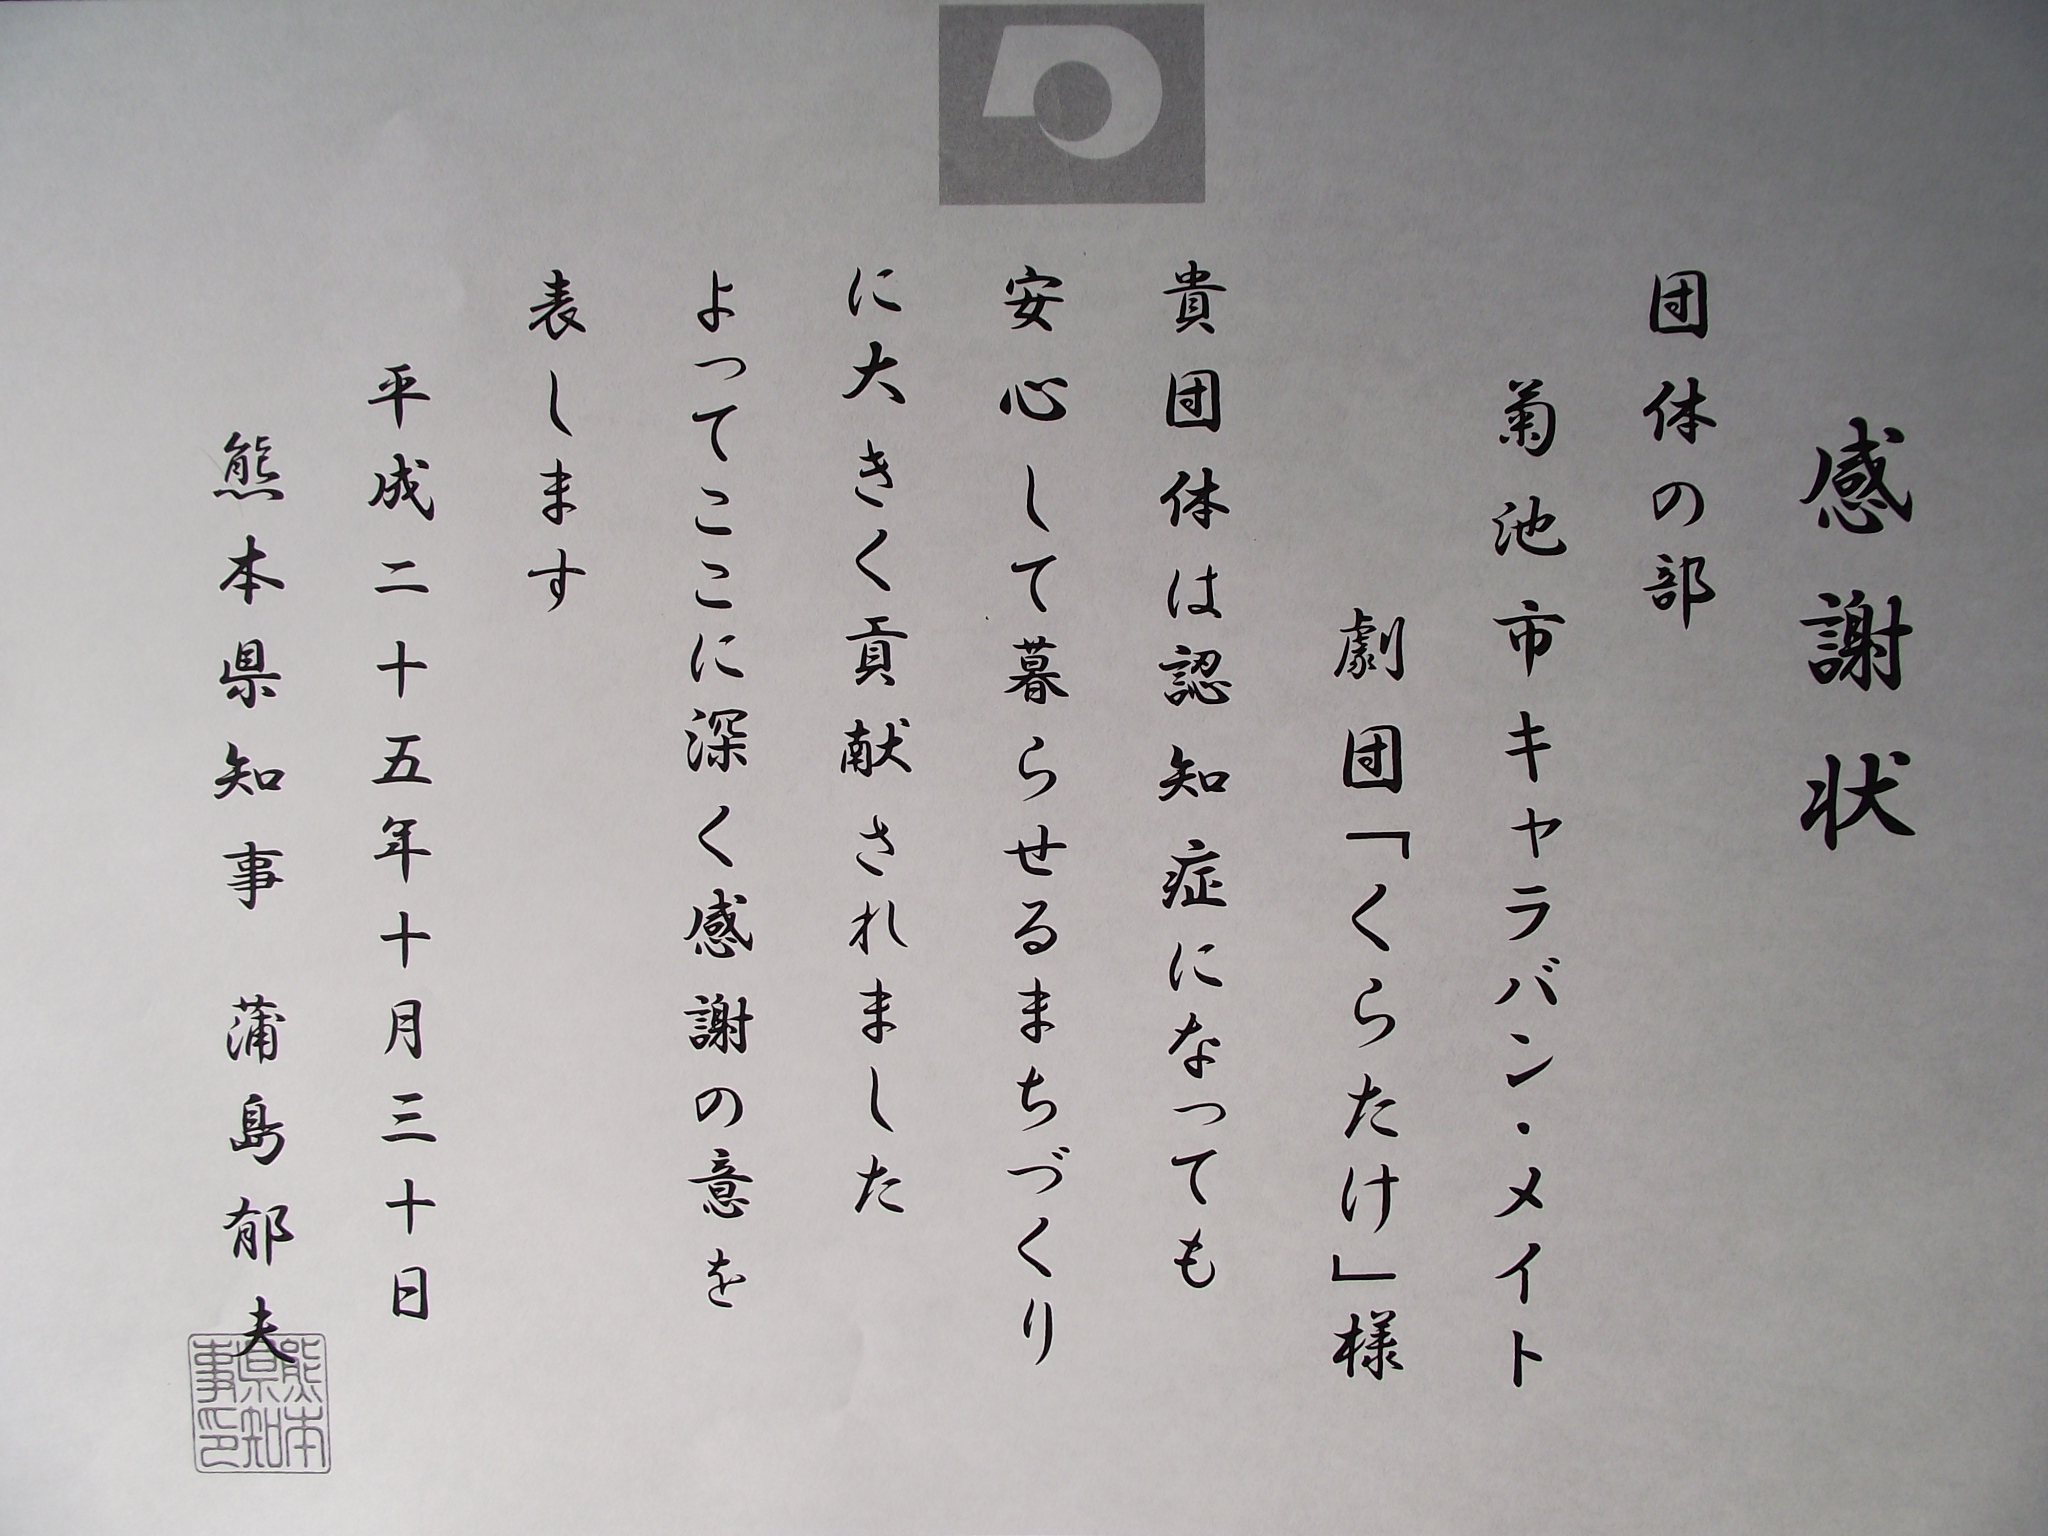 感謝状
団体の部
菊池市キャラバン・メイト
劇団「くらたけ」様
貴団体は認知症になっても
安心して暮らせるまちづくり
に大きく貢献されました
よってここに深く感謝の意を
表します
平成二十五年十月三十日
熊本県知事 蒲島郁夫
熊本県知事印